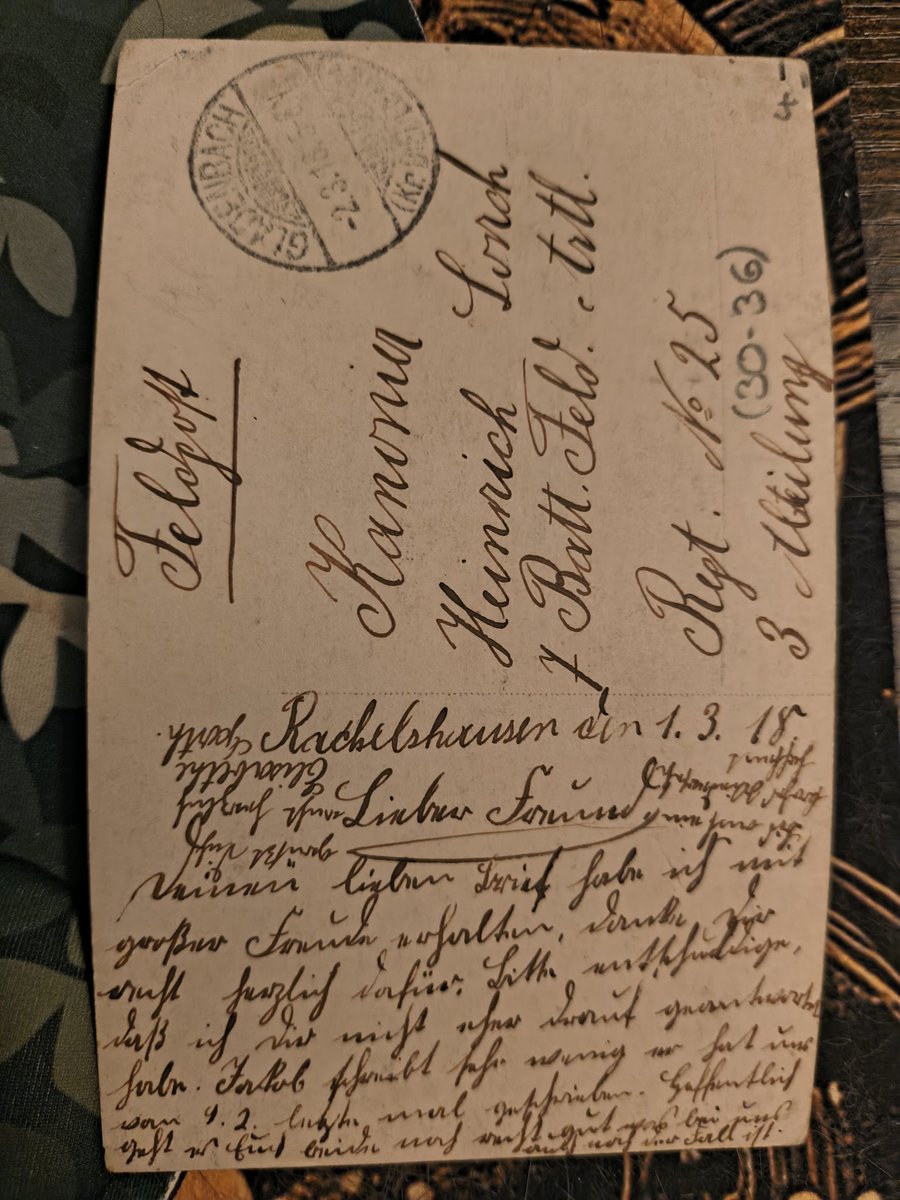 Feldpost
GLADENBACH
-2.3.18.5-6N
Kanonier
Heinrich Lorch
7 Batt. Feld. Artl.
Regt. No 25
(30-36)
3 Abteilung
4-
Rachelshausen den 1.3.18.
Lieber Freund,
Deinen lieben Brief habe ich mit
großer Freude erhalten, danke Dir
recht herzlich dafür. Bitte entschuldige,
daß ich Dir nicht eher drauf geantwortet
habe. Jakob schreibt sehr wenig er hat uns
vom 9.2. letzte mal geschrieben. Hoffentlich
geht es Euch beide noch recht gut was bei uns
auch noch der Fall ist.
auf ein
grüßt Dich
recht herzlich
Elisabethe